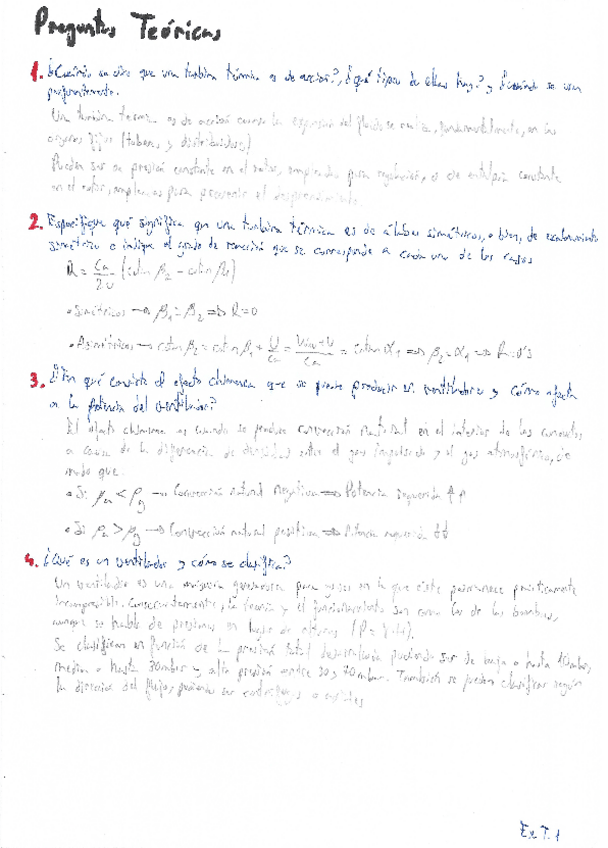 Preguntas Teóricas
1. ¿Cuándo se dice que una turbina térmica es de acción?, ¿qué tipos de ellas hay? y ¿cuándo se usan
preferentemente.
Una turbina térmica es de acción cuando la expansión del fluido se realiza, fundamentalmente, en los
órganos fijos (toberas y distribuidores)
Pueden ser de presión constante en el rotor, empleadas para regulación, o de entalpía constante
en el rotor, empleadas para prevenir el desprendimiento.
2. Especifique qué significa que una turbina térmica es de álabes simétricos, o bien, de escalonamiento
simétrico e indique el grado de reacción que se corresponde a cada uno de los casos
R = Ca/2u (cotan β2 - cotan β1)
• Simétricos → β1 = β2 ⇒ R=0
• Asimétricos → cotan β2 = cotan β1 + U/Ca = = cotan α1 ⇒ β2 = α1 ⇒ R=0'5
3. ¿En qué consiste el efecto chimenea que se puede producir en ventiladores y cómo afecta
a la potencia del ventilador?
El efecto chimenea es cuando se produce convección natural en el interior de los conductos
a causa de la diferencia de densidades entre el gas impulsado y el gas atmosférico, de
modo que:
• Si ρa < ρg → Convección natural negativa ⇒ Potencia requerida ↑↑
• Si ρa > ρg → Convección natural positiva ⇒ Potencia requerida ↓↓
4. ¿Qué es un ventilador y cómo se clasifica?
Un ventilador es una máquina generadora para gases en la que éste permanece prácticamente
incompresible. Consecuentemente, la teoría y el funcionamiento son como las de las bombas,
aunque se hable de presiones en lugar de alturas (P = γ·H).
Se clasifican en función de la presión total desarrollada pudiendo ser de baja o hasta 10mbar,
media o hasta 30mbar y alta presión entre 30 y 70mbar. También se pueden clasificar según
la dirección del flujo, pudiendo ser centrífugos o axiales
Ex T. 1